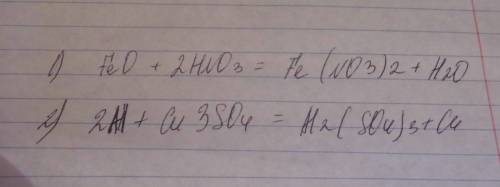 1) FeO + 2HNO3 = Fe (NO3)2 + H2O
2) 2Al + Cu 3SO4 = Al2(SO4)3 + Cu